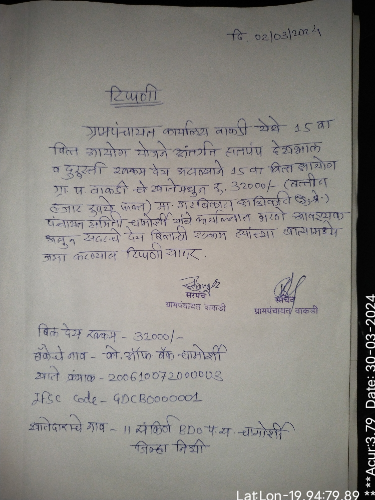 दि. 02/03/2024
टिप्पणी
ग्रामपंचायत कार्यालय वाकडी येथे 15 वा
वित्त आयोग योजने अंतर्गत हातपंप देखभाल
व दुरुस्ती रक्कम देय असल्याने 15 वा वित्त आयोग
ग्रा. प. वाकडी चे खातेमधून रु. 32000/- (बत्तीस
हजार रुपये फक्त) मा. गट विकास अधिकारी
पंचायत समिती चामोर्शी यांचे कार्यालयात भरणे आवश्यक
असून सदरचे देय बिलाची रक्कम त्यांच्या खात्यामध्ये
जमा करण्यास टिप्पणी सादर.
सरपंच
ग्रामपंचायत वाकडी
सचिव
ग्रामपंचायत वाकडी
बिल देय रक्कम - 32000/-
बँकेचे नाव - को. ऑफ बँक चामोर्शी
खाते क्रमांक - 200610072000003
IFSC Code - GDCB0000001
खातेदाराचे नाव - 11 संकिर्ण BDO प. स. चामोर्शी
जिल्हा निधी
LatLon-19.94:79.89
**Acur:3.79 Date: 30-03-2024